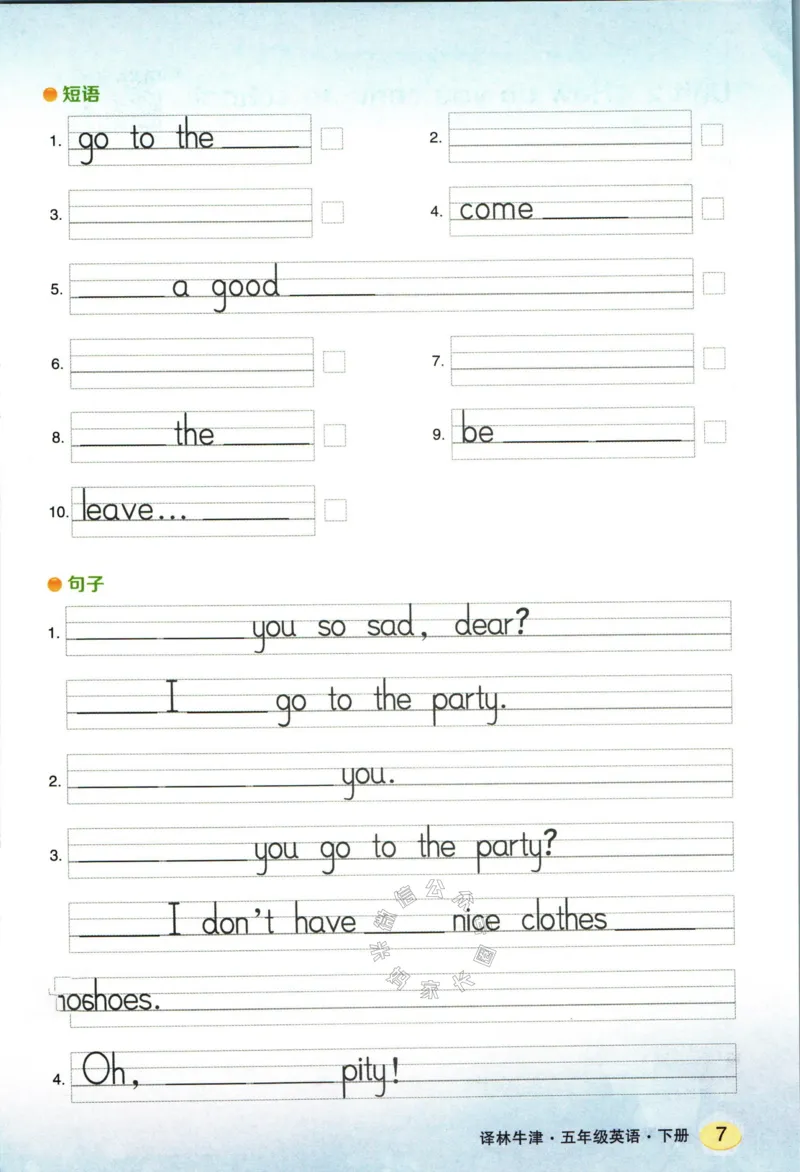 短语
1. go to the ______ 2.
3. 4. come ______
5. ______ a good ______
6. 7.
8. ______ the ______ 9. be ______ ______
10. leave... ______
句子
1. ______ ______ you so sad, dear?
______ I ______ go to the party.
2. ______ ______ ______ you.
3. ______ ______ you go to the party?
______ I don't have ______ nice clothes ______
shoes.
4. Oh, ______ ______ pity!
译林牛津·五年级英语·下册 7